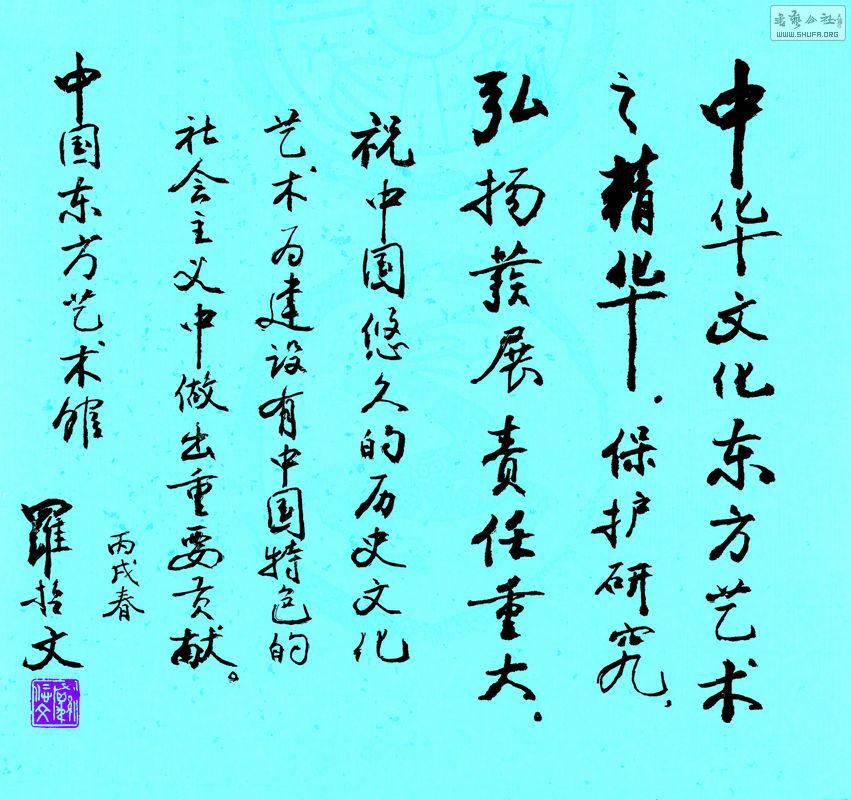 中华文化东方艺术
之精华.保护研究,
弘扬發展責任重大.
祝中国悠久的历史文化
艺术为建设有中国特色的
社会主义中做出重要贡献。
丙戌春
中国东方艺术馆
羅哲文
WWW.SHUFA.ORG